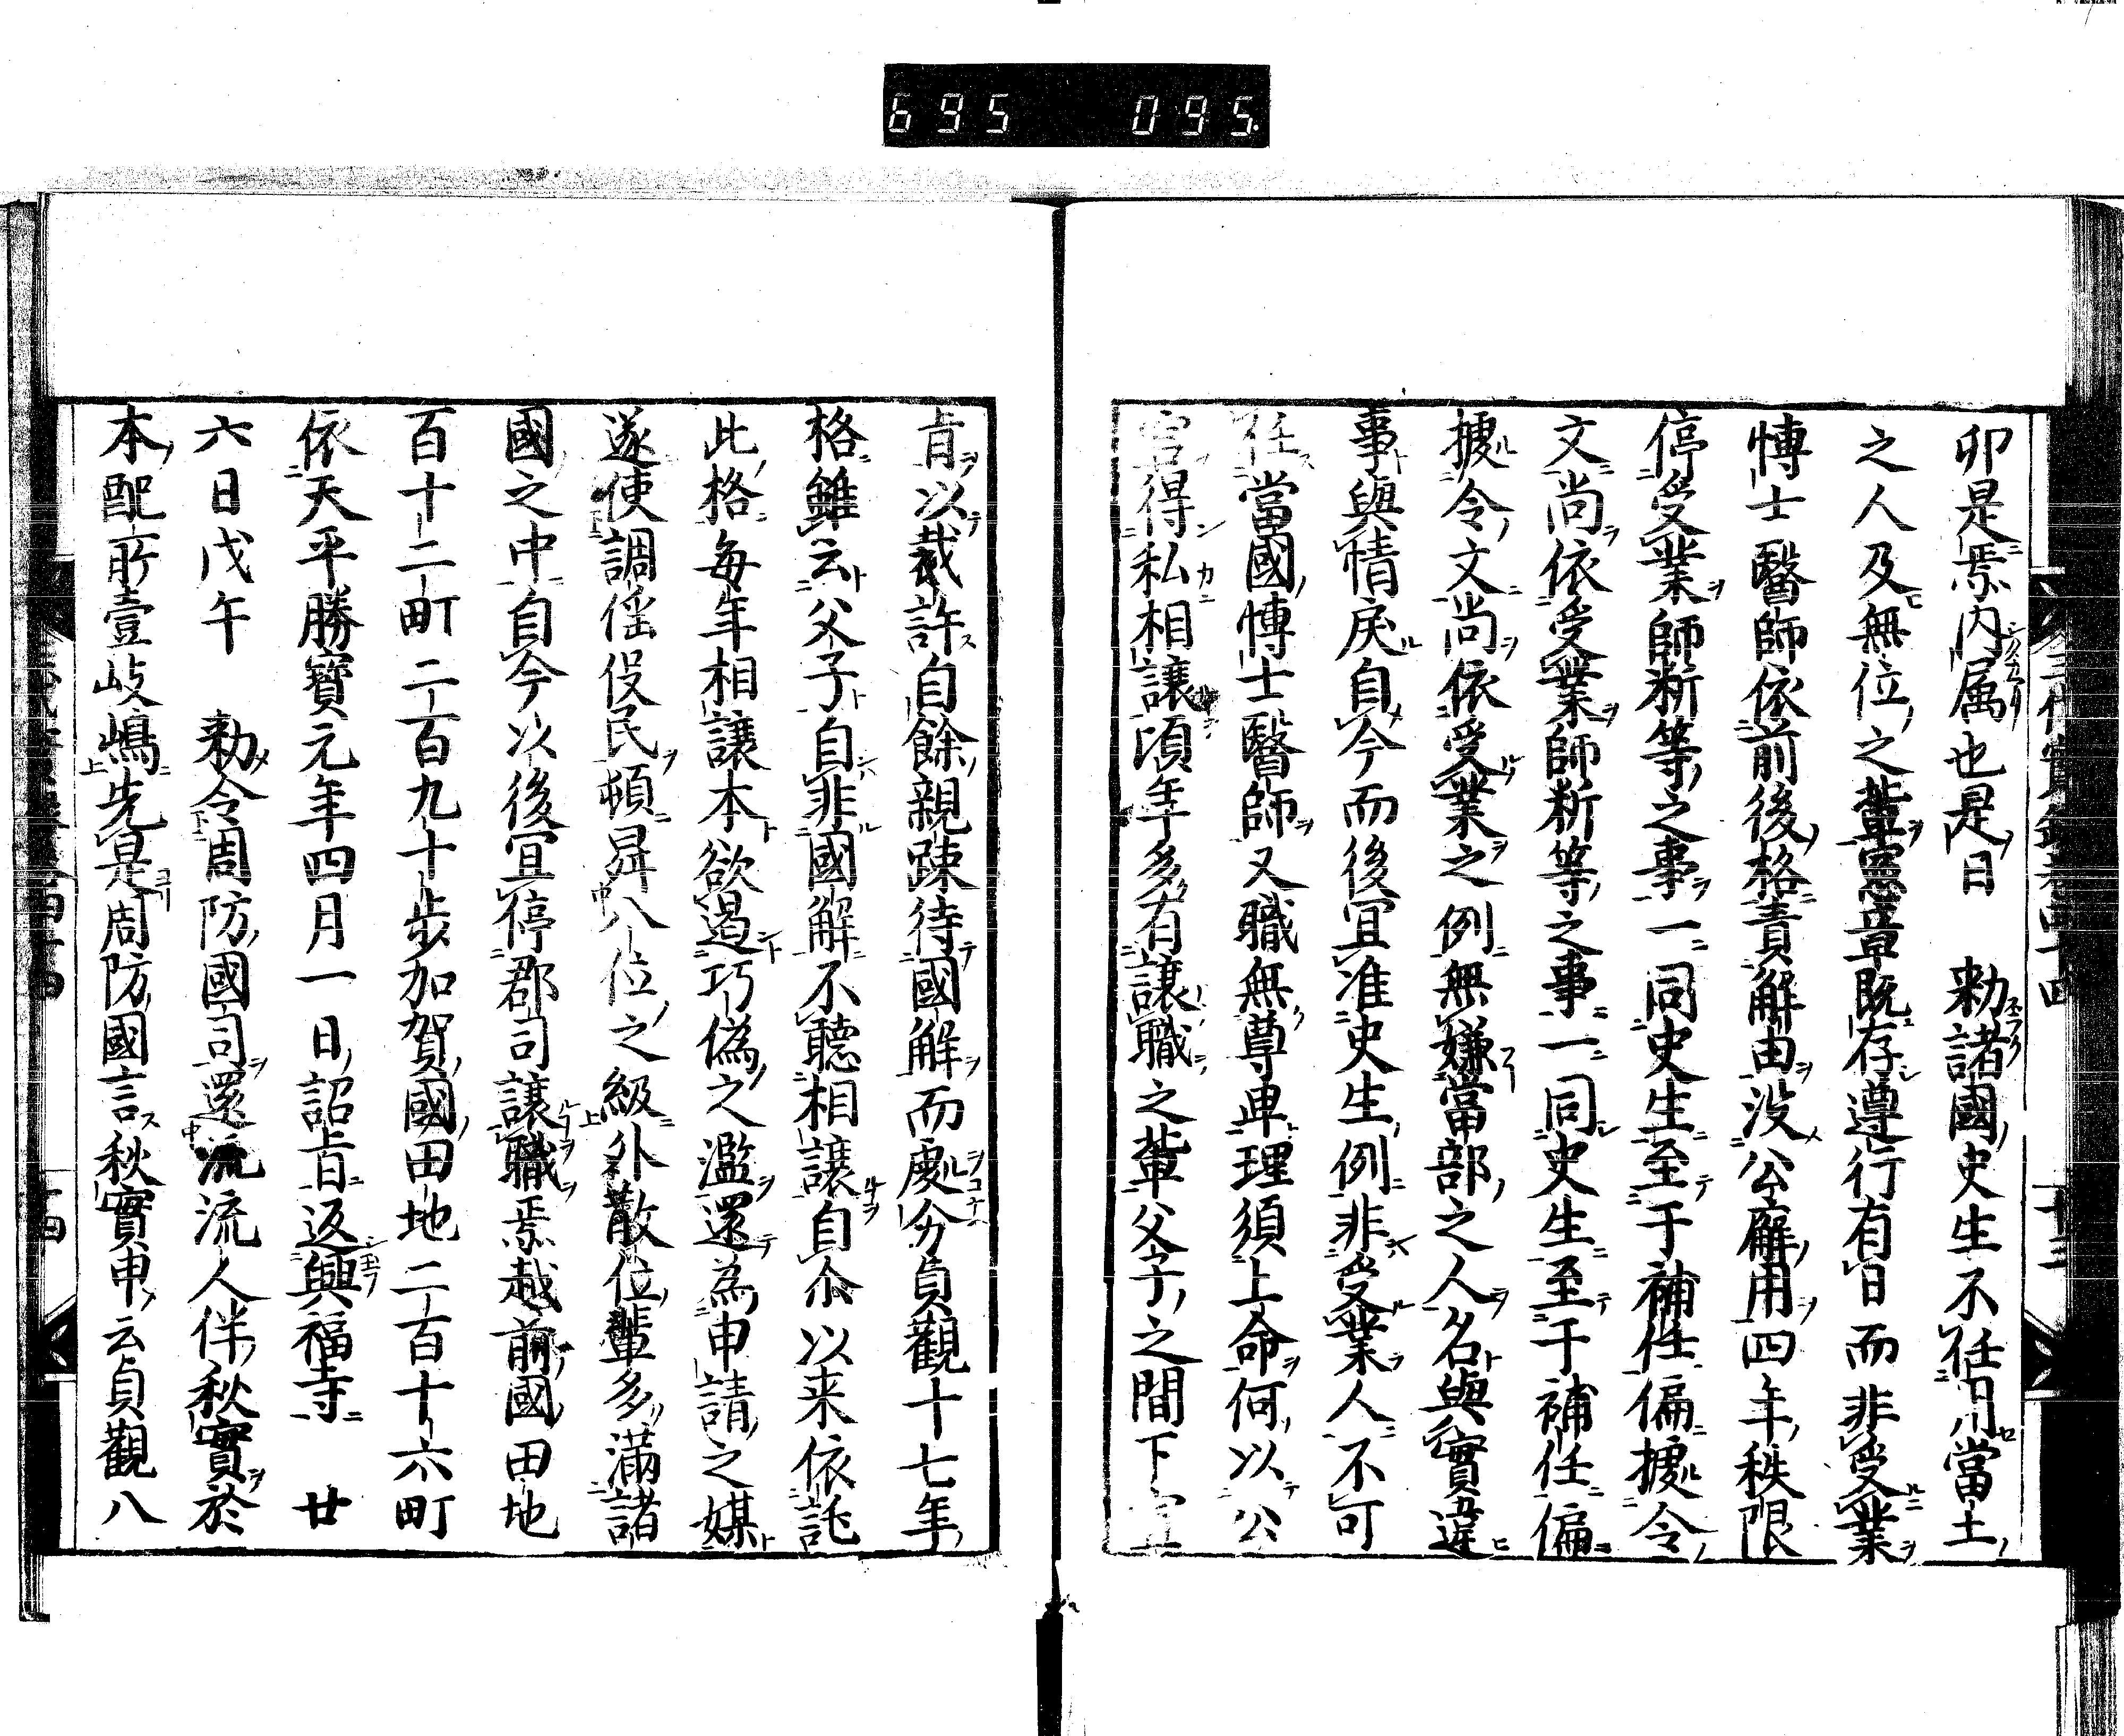 695 095.
卯是焉内属也是日　勅諸國史生不任用當土
之人及無位之輩憲章既存遵行有日而非受業
博士醫師依前後格責解由没公廨用四年秩限
停受業師䉼等之事一同史生至于補任偏據令
文尚依受業師䉼等之事一同史生至于補任偏
據令文尚依受業之例無嫌當部之人名與實違
事與情戻自今而後宜准史生例非受業人不可
任當國博士醫師又職無尊卑理須上命何以公
官得私相讓頃年多有讓職之輩父子之間下宣
旨以裁許自餘親疎待國解而處分貞觀十七年
格雖云父子自非國解不聽相讓自尒以来依託
此格毎年相讓本欲遏巧偽之濫還為申請之媒
遂使調徭役民頓昇八位之級外散位輩多滿諸
國之中自今以後宜停郡司讓職焉越前國田地
百十二町二百九十歩加賀國田地二百十六町
依天平勝寶元年四月一日詔旨返興福寺　廿
六日戊午　勅令周防國司還流流人伴秋實於
本配所壹岐嶋先是周防國言秋實申云貞觀八